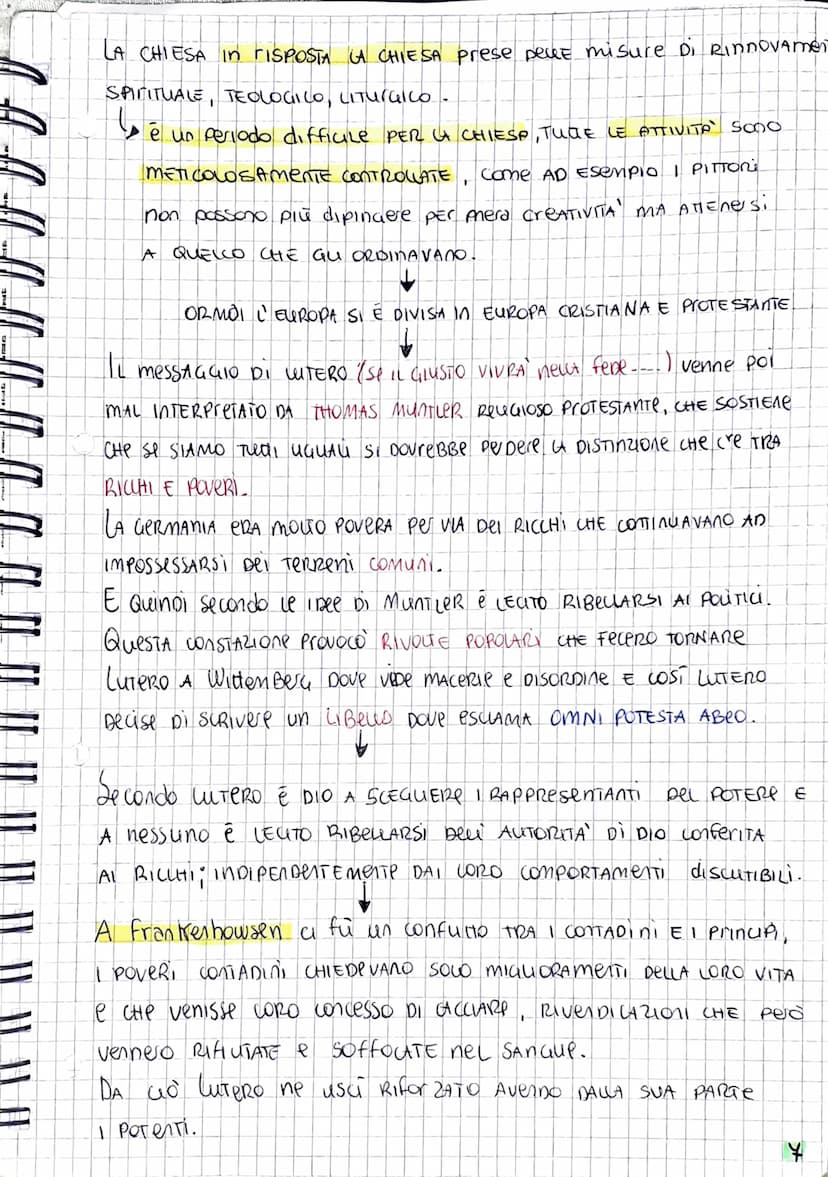 LA CHIESA in risposta LA CHIESA prese delle misure di rinnovamen
SPIRITUALE, TEOLOGICO, LITURGICO.
è un periodo difficile PER LA CHIESA, TUTTE LE ATTIVITÀ SONO
METICOLOSAMENTE CONTROLLATE, COME AD ESEMPIO I PITTORI
non possono più dipingere per mera CREATIVITÀ MA ATTENERSI
A QUELLO CHE GLI ORDINAVANO.
ORMAI L'EUROPA SI È DIVISA IN EUROPA CRISTIANA E PROTESTANTE
IL MESSAGGIO DI LUTERO (SE IL GIUSTO VIVRÀ nella fede....) venne poi
MAL INTERPRETATO DA THOMAS MUNTLER RELIGIOSO PROTESTANTE, CHE SOSTIENE
CHE SE SIAMO TUTTI UGUALI SI DOVREBBE PERDERE LA DISTINZIONE CHE C'È TRA
RICCHI E POVERI.
LA GERMANIA ERA MOLTO POVERA PER VIA DEI RICCHI CHE CONTINUAVANO AD
IMPOSSESSARSI DEI TERRENI COMUNI.
E QUINDI SECONDO LE IDEE DI MUNTLER È LECITO RIBELLARSI AI POLITICI.
QUESTA CONSTAZIONE PROVOCÒ RIVOLTE POPOLARI CHE FECERO TORNARE
LUTERO A WITTENBERG DOVE VIDE MACERIE E DISORDINE E COSÌ LUTERO
DECISE DI SCRIVERE UN LIBELLO DOVE ESCLAMA OMNI POTESTA ABEO.
Secondo LUTERO È DIO A SCEGLIERE I RAPPRESENTANTI DEL POTERE E
A NESSUNO È LECITO RIBELLARSI DELL'AUTORITÀ DI DIO CONFERITA
AI RICCHI; INDIPENDENTEMENTE DAI LORO COMPORTAMENTI DISCUTIBILI.
A Frankenhowsen ci fù un conflitto TRA I CONTADINI E I PRINCIPI,
I POVERI CONTADINI CHIEDEVANO SOLO MIGLIORAMENTI DELLA LORO VITA
E CHE VENISSE LORO CONCESSO DI CACCIARE, RIVENDICAZIONI CHE PERÒ
VENNERO RIFIUTATE E SOFFOCATE NEL SANGUE.
DA CIÒ LUTERO NE USCÌ RIFORZATO AVENDO DALLA SUA PARTE
I POTENTI.
7